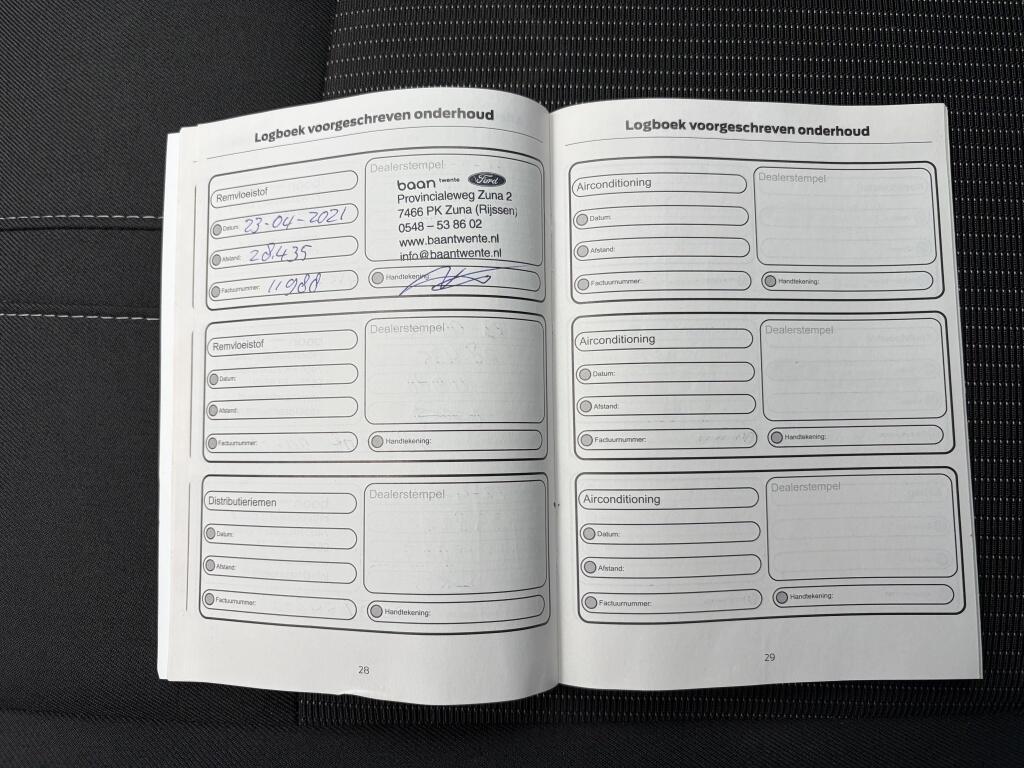 Logboek voorgeschreven onderhoud
Remvloeistof
Datum: 23-04-2021
Afstand: 28.435
Factuurnummer: 11988
Dealerstempel
baan twente Ford
Provincialeweg Zuna 2
7466 PK Zuna (Rijssen)
0548 – 53 86 02
www.baantwente.nl
info@baantwente.nl
Handtekening:
Remvloeistof
Datum:
Afstand:
Factuurnummer:
Dealerstempel
Handtekening:
Distributieriemen
Datum:
Afstand:
Factuurnummer:
Dealerstempel
Handtekening:
28
Logboek voorgeschreven onderhoud
Airconditioning
Datum:
Afstand:
Factuurnummer:
Dealerstempel
Handtekening:
Airconditioning
Datum:
Afstand:
Factuurnummer:
Dealerstempel
Handtekening:
Airconditioning
Datum:
Afstand:
Factuurnummer:
Dealerstempel
Handtekening:
29